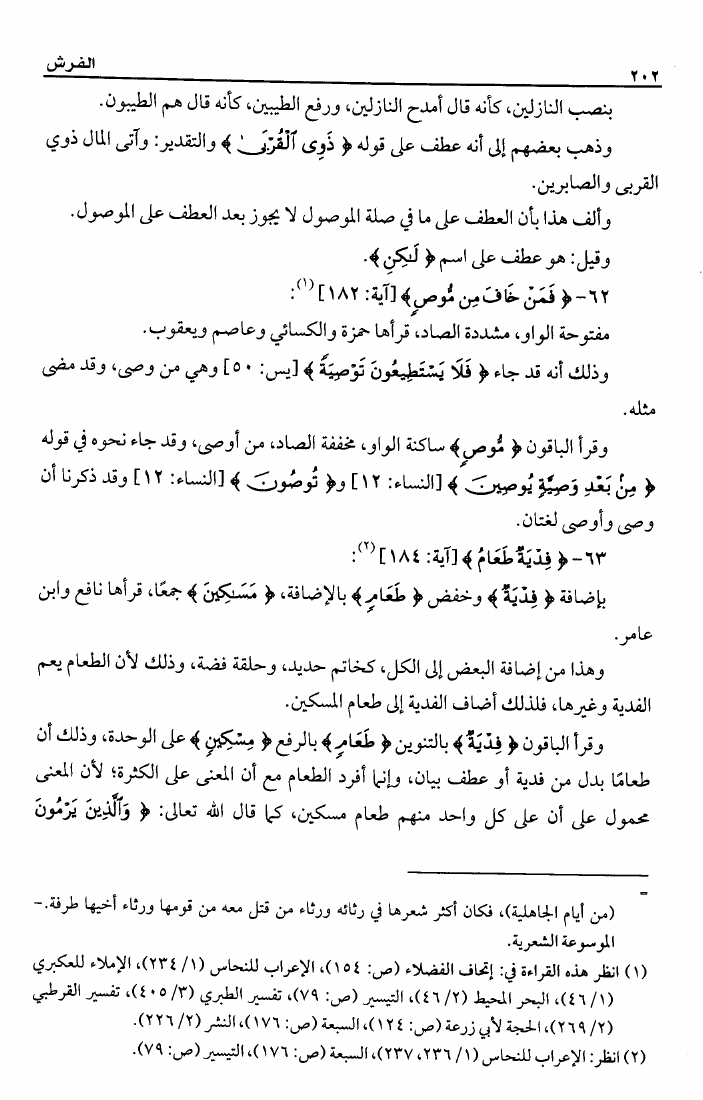 ٢٠٢
الفرش
بنصب النازلين، كأنه قال أمدح النازلين، ورفع الطيبين، كأنه قال هم الطيبون.
وذهب بعضهم إلى أنه عطف على قوله ﴿ ذَوِى ٱلْقُرْبَىٰ ﴾ والتقدير: وآتى المال ذوي
القربى والصابرين.
وألف هذا بأن العطف على ما في صلة الموصول لا يجوز بعد العطف على الموصول.
وقيل: هو عطف على اسم ﴿ لَـٰكِنِ ﴾.
٦٢- ﴿ فَمَنْ خَافَ مِن مُّوصٍ ﴾ [آية: ١٨٢] (١):
مفتوحة الواو، مشددة الصاد، قرأها حمزة والكسائي وعاصم ويعقوب.
وذلك أنه قد جاء ﴿ فَلَا يَسْتَطِيعُونَ تَوْصِيَةً ﴾ [يس: ٥٠] وهي من وصى، وقد مضى
مثله.
وقرأ الباقون ﴿ مُّوصٍ ﴾ ساكنة الواو، مخففة الصاد، من أوصى، وقد جاء نحوه في قوله
﴿ مِنۢ بَعْدِ وَصِيَّةٍ يُوصِينَ ﴾ [النساء: ١٢] و﴿ تُوصُونَ ﴾ [النساء: ١٢] وقد ذكرنا أن
وصى وأوصى لغتان.
٦٣- ﴿ فِدْيَةٌ طَعَامُ ﴾ [آية: ١٨٤] (٢):
بإضافة ﴿ فِدْيَةٌ ﴾ وخفض ﴿ طَعَامِ ﴾ بالإضافة، ﴿ مَسَـٰكِينَ ﴾ جمعًا، قرأها نافع وابن
عامر.
وهذا من إضافة البعض إلى الكل، كخاتم حديد، وحلقة فضة، وذلك لأن الطعام يعم
الفدية وغيرها، فلذلك أضاف الفدية إلى طعام المسكين.
وقرأ الباقون ﴿ فِدْيَةٌ ﴾ بالتنوين ﴿ طَعَامِ ﴾ بالرفع ﴿ مِسْكِينٍ ﴾ على الوحدة، وذلك أن
طعامًا بدل من فدية أو عطف بيان، وإنما أفرد الطعام مع أن المعنى على الكثرة؛ لأن المعنى
محمول على أن على كل واحد منهم طعام مسكين، كما قال الله تعالى: ﴿ وَٱلَّذِينَ يَرْمُونَ
=
(من أيام الجاهلية)، فكان أكثر شعرها في رثائه ورثاء من قتل معه من قومها ورثاء أخيها طرفة.-
الموسوعة الشعرية.
(١) انظر هذه القراءة في: إتحاف الفضلاء (ص: ١٥٤)، الإعراب للنحاس (١/ ٢٣٤)، الإملاء للعكبري
(١/ ٤٦)، البحر المحيط (٢/ ٤٦)، التيسير (ص: ٧٩)، تفسير الطبري (٣/ ٤٠٥)، تفسير القرطبي
(٢/ ٢٦٩)، الحجة لأبي زرعة (ص: ١٢٤)، السبعة (ص: ١٧٦)، النشر (٢/ ٢٢٦).
(٢) انظر: الإعراب للنحاس (١/ ٢٣٦، ٢٣٧)، السبعة (ص: ١٧٦)، التيسير (ص: ٧٩).